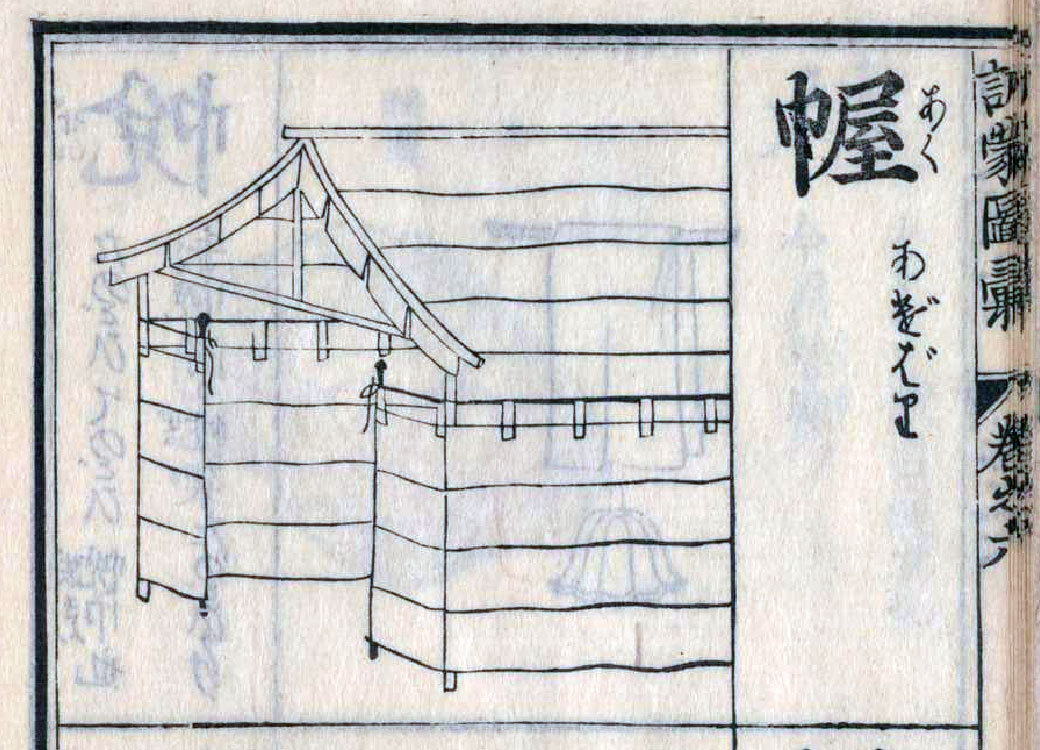 訓蒙圖彙
卷之
幄
あく
あげばり